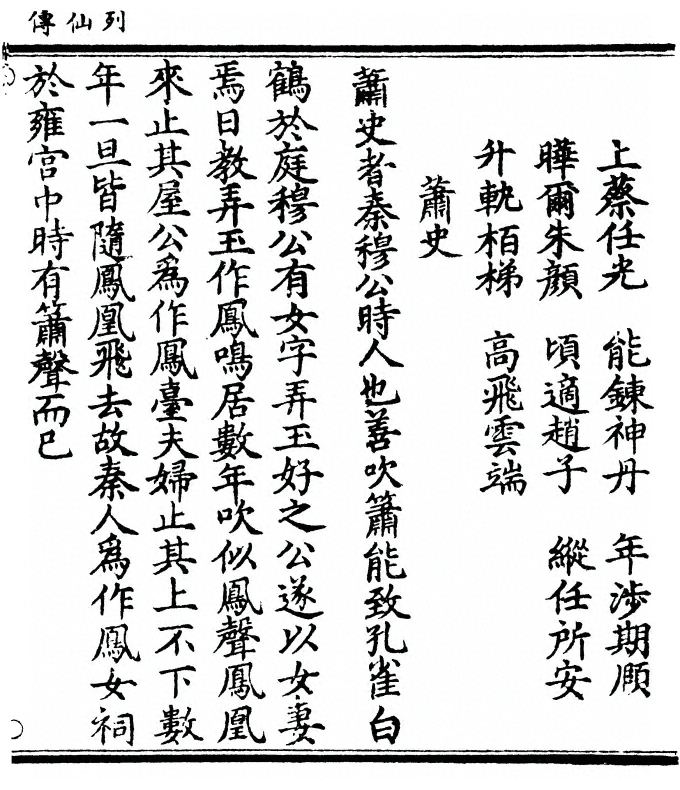 列仙傳
上蔡任光　能鍊神丹　年涉期頤
曄爾朱顏　頃適趙子　縱任所安
升軌栢梯　高飛雲端
蕭史
蕭史者秦穆公時人也善吹簫能致孔雀白
鶴於庭穆公有女字弄玉好之公遂以女妻
焉日教弄玉作鳳鳴居數年吹似鳳聲鳳凰
來止其屋公爲作鳳臺夫婦止其上不下數
年一旦皆隨鳳凰飛去故秦人爲作鳳女祠
於雍宮中時有簫聲而已